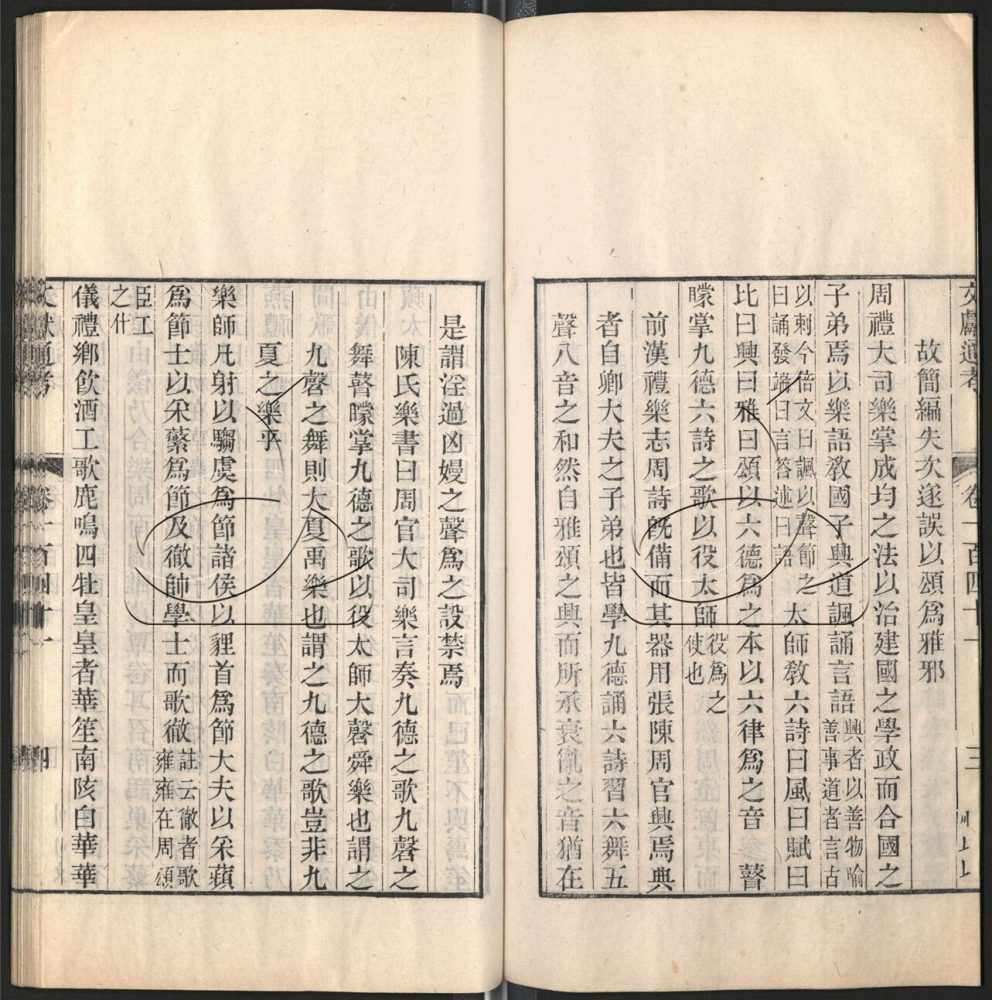 文獻通考 卷一百四十一 三
故簡編失次遂誤以頌爲雅邪
周禮大司樂掌成均之法以治建國之學政而合國之
子弟焉以樂語敎國子興道諷誦言語興者以善物喻善事道者言古
以刺今倍文曰諷以聲節之曰誦發端曰言答述曰語太師敎六詩曰風曰賦曰
比曰興曰雅曰頌以六德爲之本以六律爲之音 瞽
矇掌九德六詩之歌以役太師役爲之使也
前漢禮樂志周詩旣備而其器用張陳周官具焉典
者自卿大夫之子弟也皆學九德誦六詩習六舞五
聲八音之和然自雅頌之興而所承衰亂之音猶在
是謂淫過凶嫚之聲爲之設禁焉
陳氏樂書曰周官大司樂言奏九德之歌九磬之
舞瞽矇掌九德之歌以役太師大磬舜樂也謂之
九磬之舞則大夏禹樂也謂之九德之歌豈非九
夏之樂乎
樂師凡射以騶虞爲節諸侯以貍首爲節大夫以采蘋
爲節士以采蘩爲節及徹帥學士而歌徹註云徹者歌雍雍在周頌
臣工之什
儀禮鄉飲酒工歌鹿鳴四牡皇皇者華笙南陔白華華
文獻通考 卷一百四十一 四